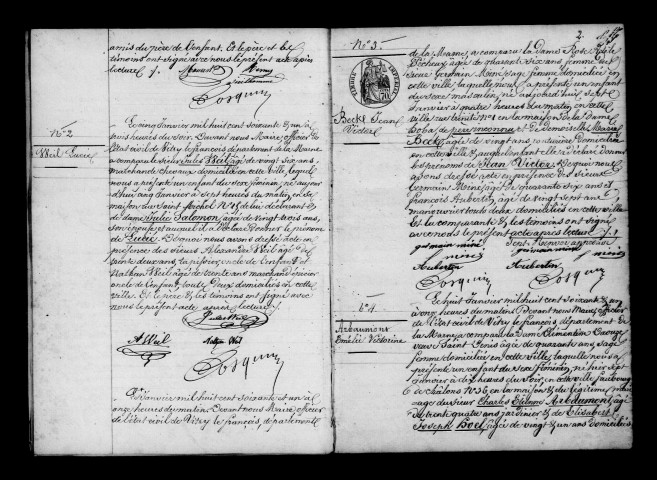 amis du père de l'enfant. Et le père et les
témoins ont signé avec nous le présent acte après
lecture.
N° 2
Weil Lucie
Le cinq Janvier mil huit cent soixante & un à
heures du soir. Devant nous Maire officier de
l'état civil de Vitry le français département de la Marne
a comparu le sieur Jules Weil âgé de vingt six ans
marchand de chevaux domicilié en cette ville, lequel
nous a présenté un enfant du sexe féminin, né aujour
d'hui cinq Janvier à sept heures du matin, en la
maison du Saint Michel N° 15 de lui déclarant &
de dame Julie Salomon, âgée de vingt trois ans,
son épouse, et auquel il a déclaré donner le prénom
de Lucie. Desquoi nous avons dressé acte en
présence des sieurs Alexandre Weil âgé de
trente deux ans, tapissier, oncle de l'enfant et
Nathan Weil âgé de trente ans marchand épicier
oncle de l'enfant, tous deux domiciliés en cette
ville. Et le père & les témoins ont signé avec
nous le présent acte après lecture.
Jules Weil
A Weil
Nathan Weil
Le Janvier mil huit cent soixante et un à
onze heures du matin. Devant nous Maire officier
de l'état civil de Vitry le français, département
2
N° 3
Beckt Jean
Victor
de la Marne, a comparu la Dame Rose
âgée de quarante six ans femme du
sieur Germain Moine sage femme domiciliée en
cette ville, laquelle nous a présenté un enfant
du sexe masculin, né aujourd'hui sept
Janvier à quatre heures du matin en cette
ville N° 1 en la maison de la dame
de père inconnu & de Demoiselle Marie
Beckt, âgée de vingt ans couturière domiciliée
en cette ville & auquel enfant elle a déclaré donner
les prénoms de Jean Victor. Desquoi nous
avons dressé acte en présence des sieurs
Germain Moine âgé de quarante six ans et
François Aubertin, âgé de vingt sept ans,
manouvriers tous deux domiciliés en cette ville
et la comparante & les témoins ont signé
avec nous le présent acte après lecture.
germain moine
Aubertin
Aubertin
N° 4
Arbaumont
Emélie Victorine
Le huit Janvier mil huit cent soixante & un
à onze heures du matin. Devant nous Maire officier
de l'état civil de Vitry le français département de
la Marne a comparu la dame Clémentine
veuve Saint Denis âgée de quarante ans, sage
femme domiciliée en cette ville, laquelle nous a
présenté un enfant du sexe féminin, né hier sept
Janvier à dix heures du soir, en cette ville faubourg
de Châlons N° 36 en la maison & du légitime mari
=age du sieur Charles Etienne Arbaumont, âgé
de trente quatre ans jardinier & de Elisabeth
Joseph Hoel, âgée de vingt & un ans domiciliés